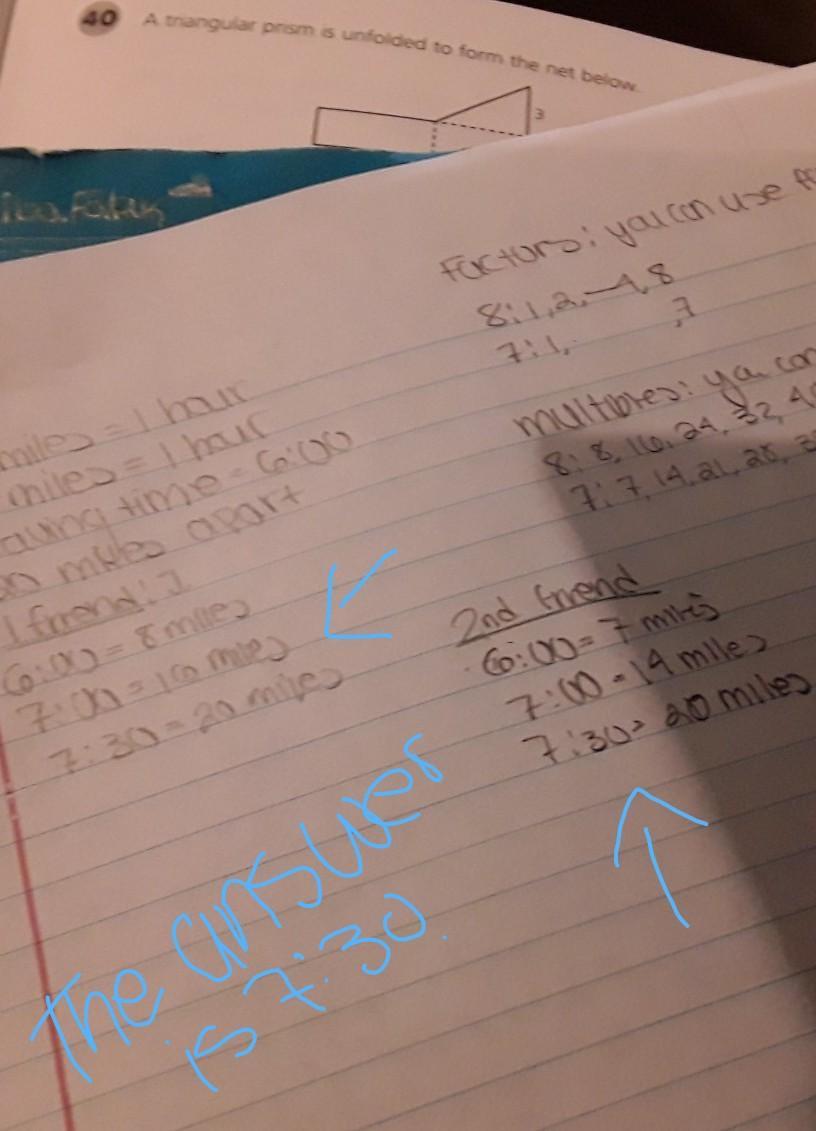 40 A triangular prism is unfolded to form the net below.
3
Factors: you can use
8: 1, 2, 4, 8
7: 1, 7
multiples: you can
8: 8, 16, 24, 32, 40
7: 7, 14, 21, 28,
miles = 1 hour
miles = 1 hour
time = 6:00
miles apart
1 friend:
6:00 = 8 miles
7:00 = 16 miles
7:30 = 20 miles
2nd friend
6:00 = 7 miles
7:00 = 14 miles
7:30 = 20 miles
The answer
is 7:30.